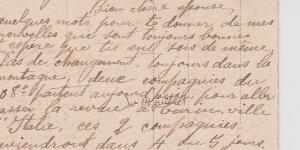 Bien chère épouse,
quelques mots pour te donner de mes
nouvelles qui sont toujours bonne
espère que tu est sois de même.
Pas de changement, toujours dans la
montagne, deux compagnies du
08e partent aujourd'hui pour aller
14 juillet
passer la revue à Turin, ville
d'Italie, ces 2 compagnies
reviendront dans 4 ou 5 jours.